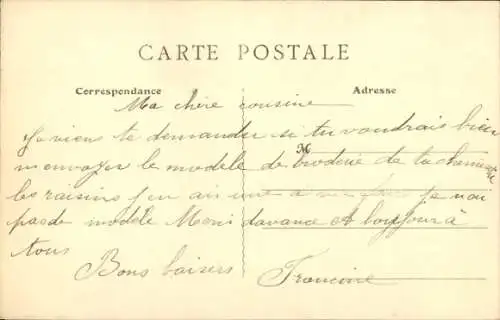 CARTE POSTALE
Correspondance
Adresse
M
Ma chère cousine
Je viens te demander si tu voudrais bien
m envoyer le modèle de broderie de ta chemise
les raisins j en ai une a je n ai
pas de modèle Merci davance et bonjour à
tous
Bons baisers Francine